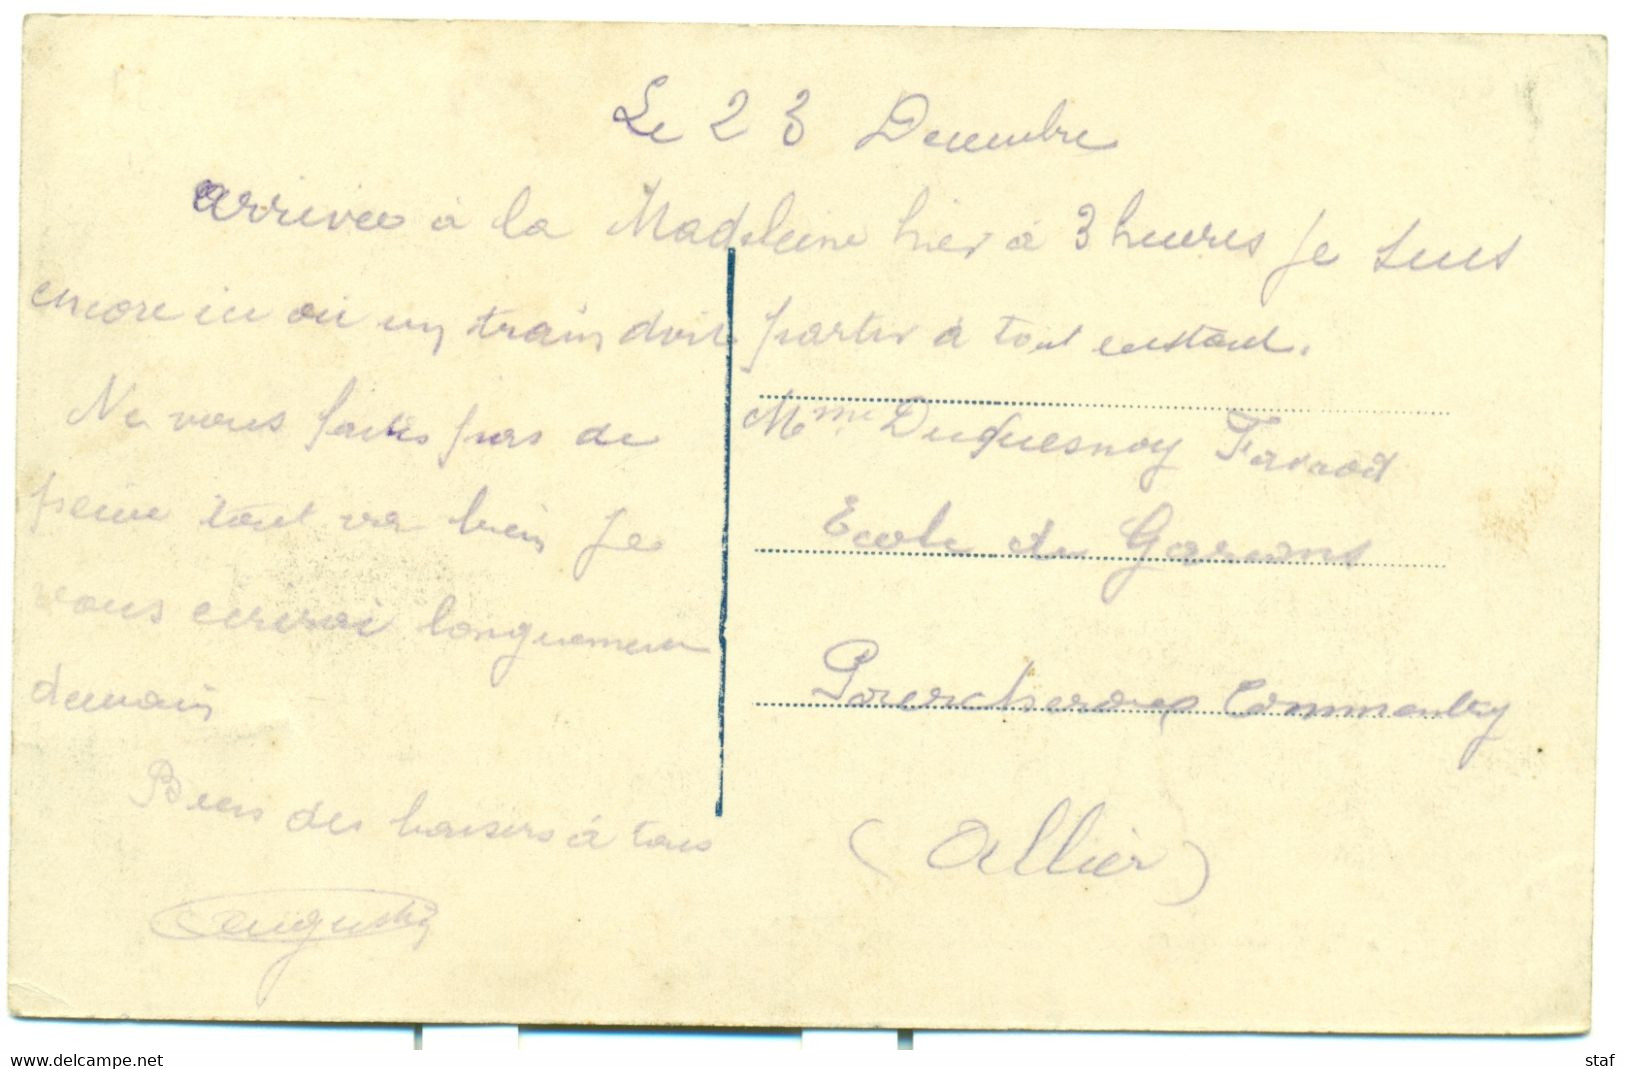 Le 23 Decembre
arrivée à la Madeleine hier à 3 heures je suis
encore ici où un train doit partir à tout instant.
Ne vous faites pas de
peine tout va bien Je
vous écrirai longuement
demain
Bien des baisers à tous
Auguste
Mme Duquesnoy
Ecole de Garçons
Commentry
(Allier)
www.delcampe.net
staf